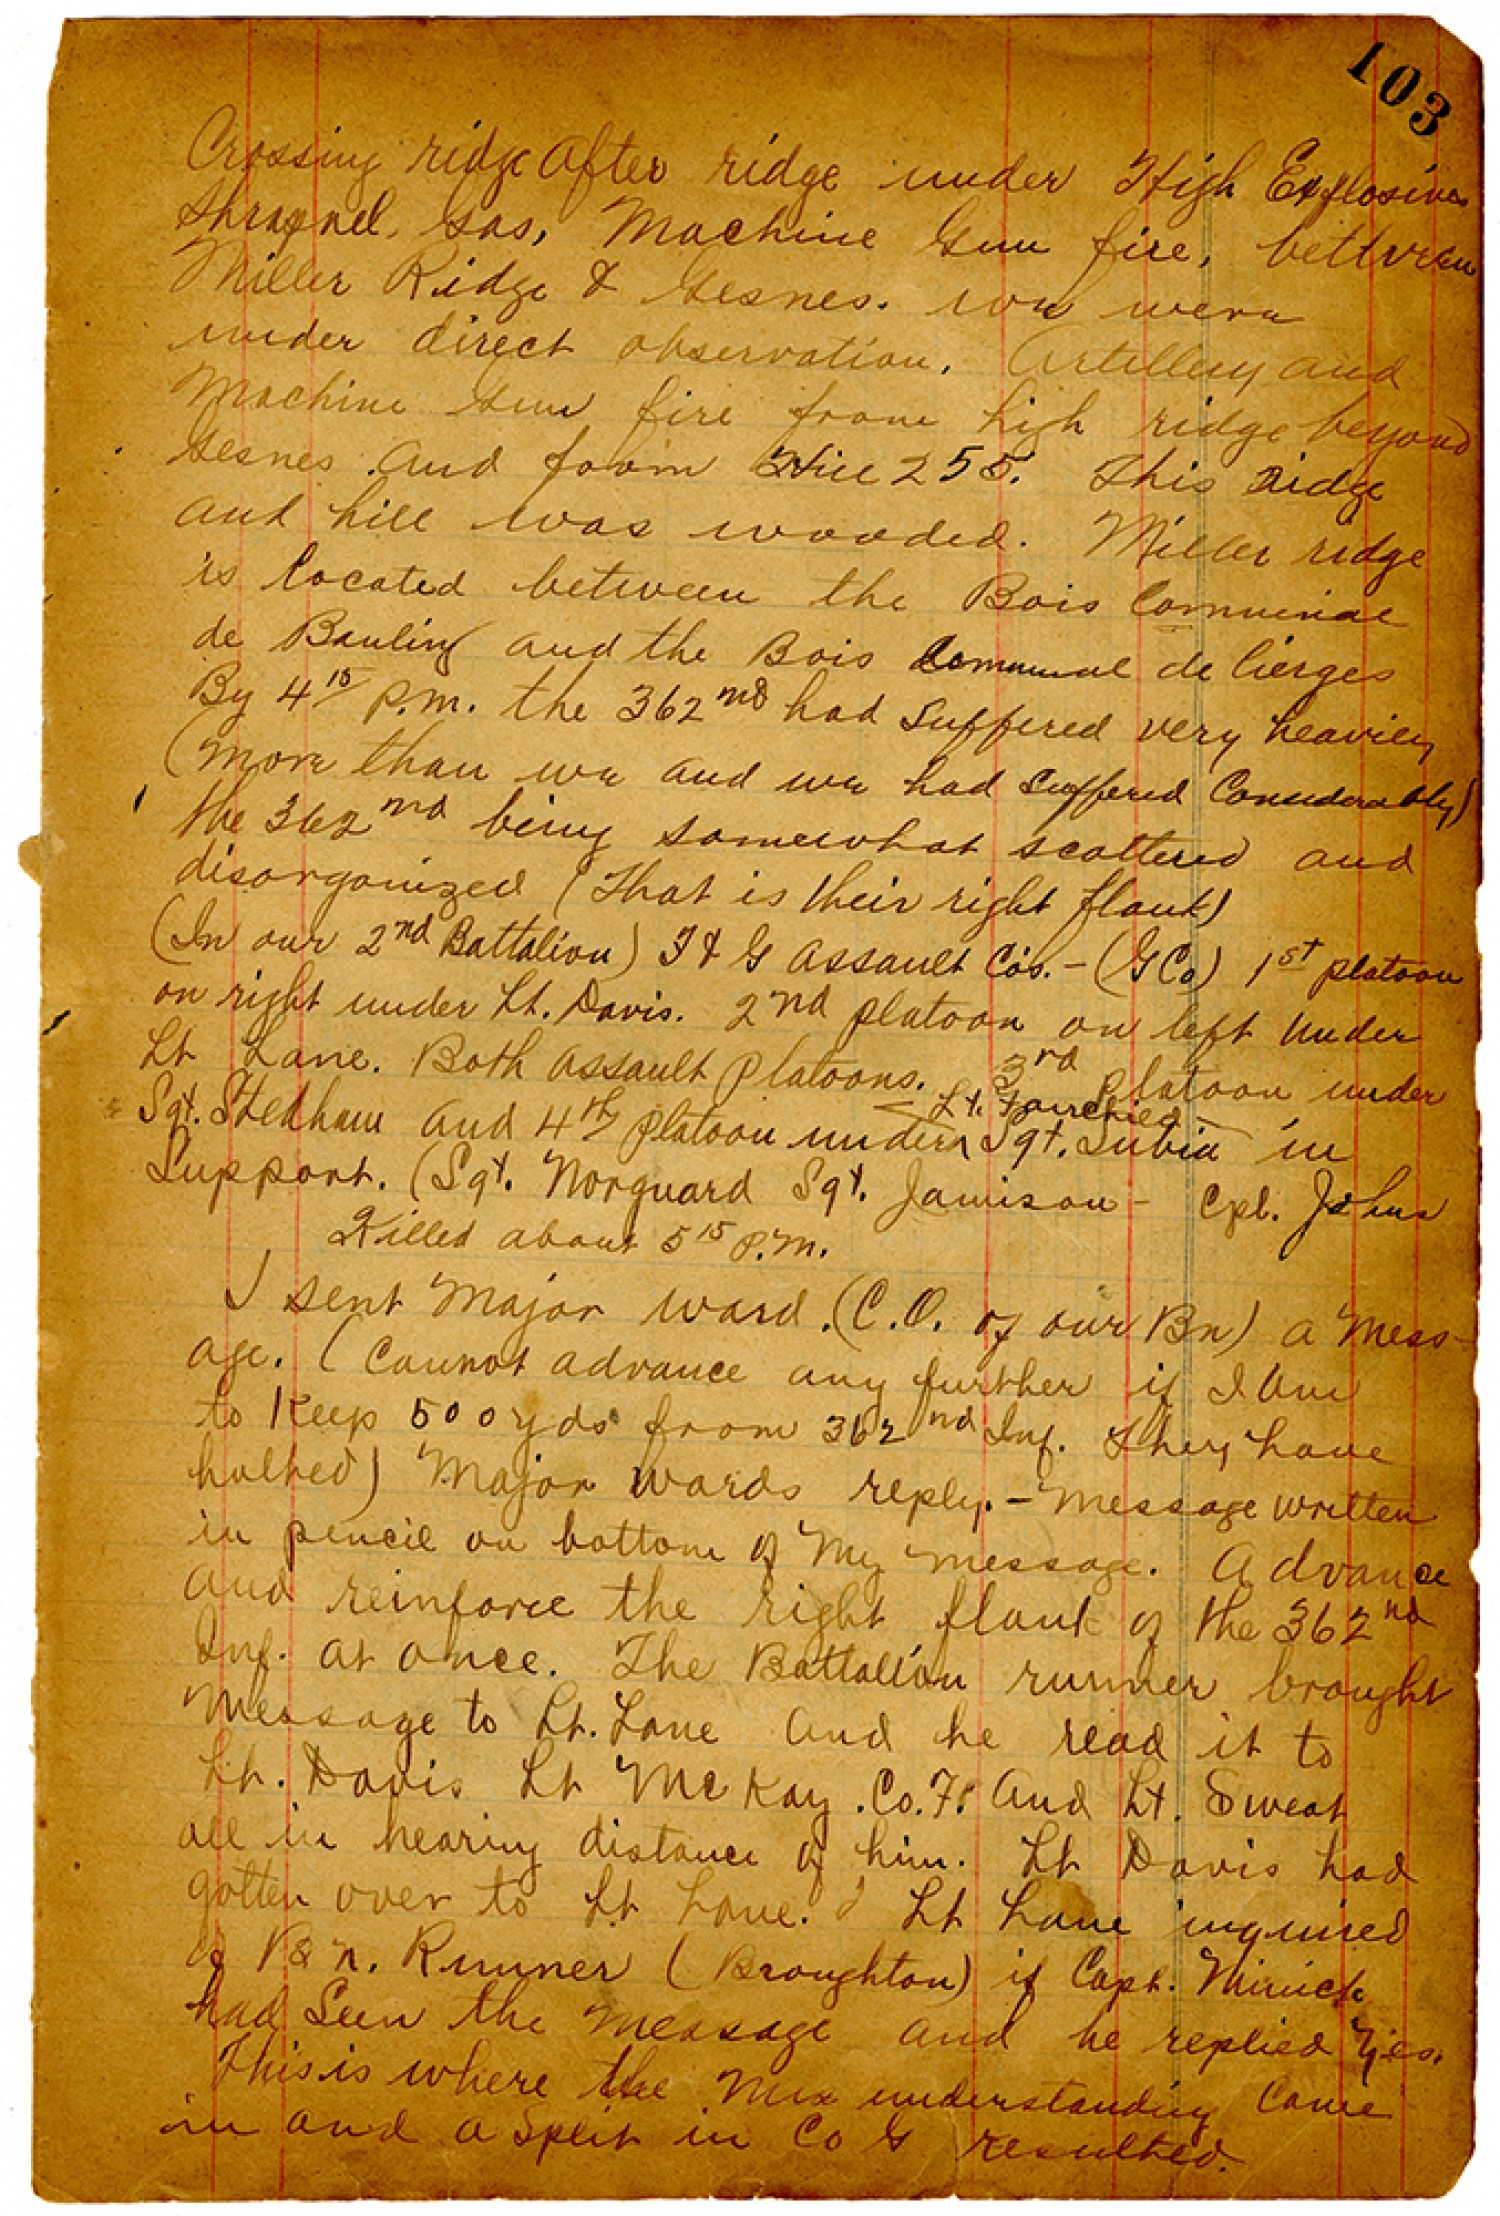 103
Crossing ridge After ridge under High Explosive
Shrapnel, Gas, Machine Gun fire, between
Miller Ridge & Gesnes. we were
under direct observation, Artillery and
Machine Gun fire from high ridge beyond
Gesnes and from Hill 255. This ridge
and hill was wooded. Miller ridge
is located between the Bois Communal
de Bauliny and the Bois Communal de Cierges
By 4 15 P.M. the 362nd had suffered very heavily
(More than we and we had suffered Considerably)
the 362nd being somewhat scattered and
disorganized (That is their right flank)
(In our 2nd Battalion) F & G Assault Co's. - (G Co) 1st platoon
on right under Lt. Davis. 2nd platoon on left under
Lt Lane. Both Assault platoons. 3rd platoon under
Lt. Fairchild
Sgt. Stedham and 4th platoon under Sgt. Lubia in
Support. (Sgt. Norguard Sgt. Jamison - Cpl. Johns
Killed about 5 15 P.M.
I sent Major Ward. (C.O. of our Bn) a Mess-
age. (Cannot advance any further if I am
to keep 500 yds from 362nd Inf. They have
halted) Major Wards reply. - Message written
in pencil on bottom of My message. Advance
and reinforce the right flank of the 362nd
Inf. at once. The Battalion runner brought
Message to Lt. Lane and he read it to
Lt. Davis Lt McKay. Co. F. and Lt. Sweat
all in hearing distance of him. Lt Davis had
gotten over to Lt Lane. Lt Lane inquired
of Bn. Runner (Broughton) if Capt. Minick
had Seen the Message and he replied Yes.
This is where the Mix understanding Came
in and a Split in Co G resulted.